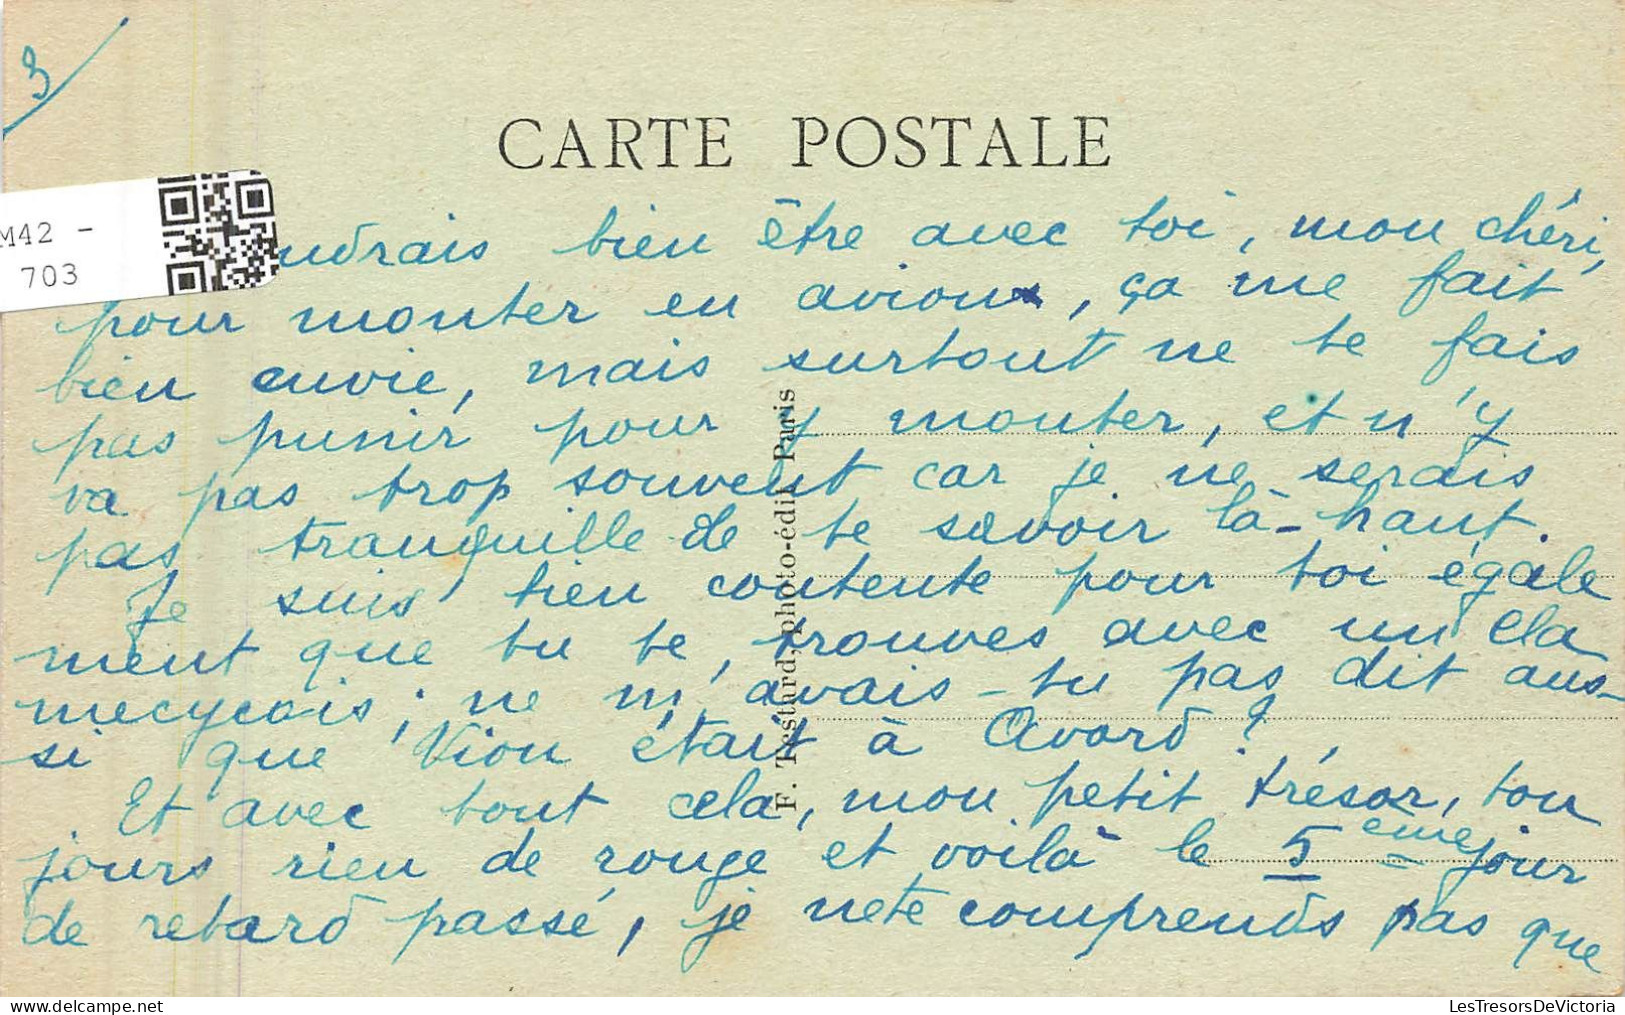 3
CARTE POSTALE
M42 -
703
udrais bien être avec toi, mon chéri,
pour monter en avion, ça me fait
bien envie, mais surtout ne te fais
pas punir pour y monter, et n'y
va pas trop souvent car je ne serais
pas tranquille de te savoir là-haut.
Je suis bien contente pour toi égale
ment que tu te trouves avec un Cla
mecycois; ne m'avais-tu pas dit aus-
si que Vion était à Avord ?
Et avec tout cela, mon petit trésor, tou
jours rien de rouge et voilà le 5ème jour
de retard passé, je ne te comprends pas que
F. Testard, photo-édit. Paris
LesTresorsDeVictoria.com